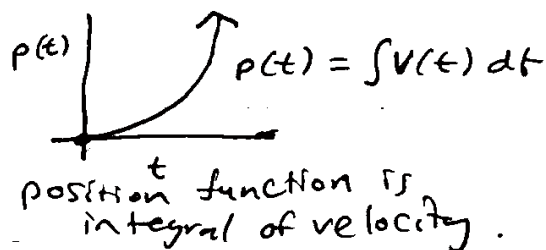 p(t)
p(t) = ∫v(t) dt
t
position function is
integral of velocity.